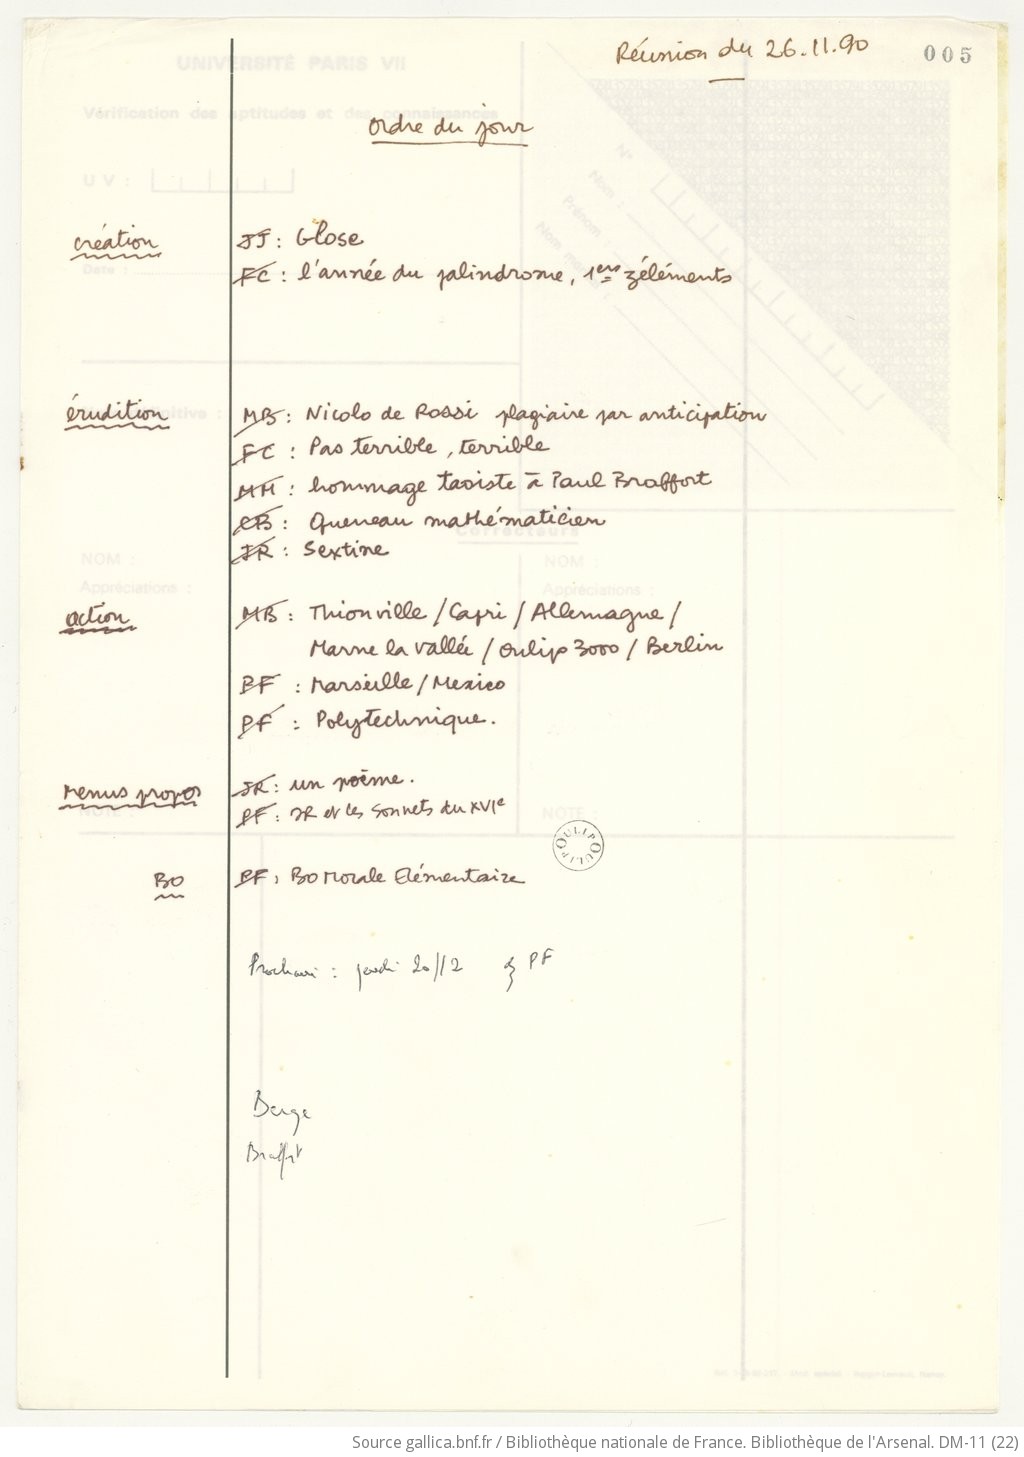 Réunion du 26.11.90
005
UNIVERSITÉ PARIS VII
Vérification des aptitudes et des connaissances
Ordre du jour
UV :
N°
Nom :
Prénom :
création
JJ : Glose
Date :
FC : l'année du palindrome, 1ers zéléments
érudition
MB : Nicolo de Rossi plagiaire par anticipation
FC : Pas terrible, terrible
MM : hommage taoiste à Paul Braffort
CB : Queneau mathématicien
Correcteurs
JR : Sextine
NOM :
NOM :
Appréciations :
Appréciations :
action
MB : Thionville / Capri / Allemagne /
Marne la Vallée / Oulipo 3000 / Berlin
BF : Marseille / Mexico
PF : Polytechnique.
Menus propos
JR : un poème.
PF : JR et les sonnets du XVIe
NOTE :
NOTE :
OULIPO OULIPO
BO
PF : BO Morale Elémentaire
Prochain : jeudi 20/12 PF
Berge
Braffort
Source gallica.bnf.fr / Bibliothèque nationale de France. Bibliothèque de l'Arsenal. DM-11 (22)